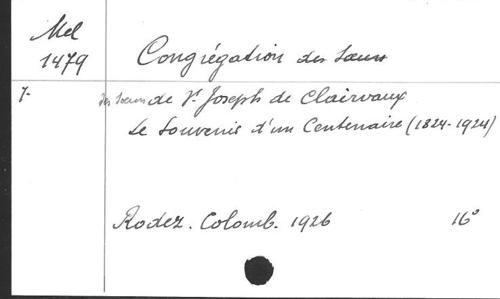 Mel
1479
Congrégation des Sœurs
7-
des sœurs de St Joseph de Clairvaux
Le Souvenir d'un Centenaire (1824-1924)
Rodez. Colomb. 1926 16°